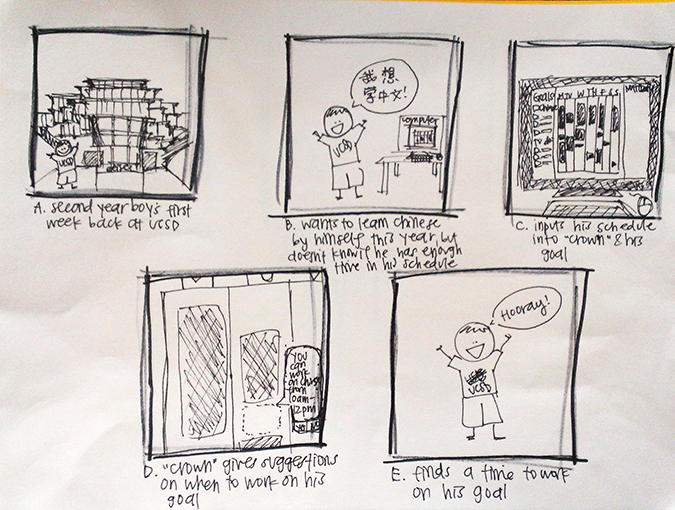 UCSD
A. second year boy's first
week back at UCSD
我想
学中文!
computer
UCSD
B. wants to learn chinese
by himself this year, but
doesn't know if he has enough
time in his schedule
Goals
M T W TH F S S
C. inputs his schedule
into "crown" & his
goal
you
can
work
on
from
10am-
12pm
D. "crown" gives suggestions
on when to work on his
goal
Hooray!
UCSD
E. finds a time to work
on his goal